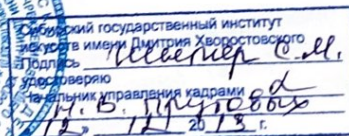 Сибирский государственный институт
искусств имени Дмитрия Хворостовского
Подпись Швецер С.М.
удостоверяю
Начальник управления кадрами
Н. В. Прутовых
12 12 2013 г.